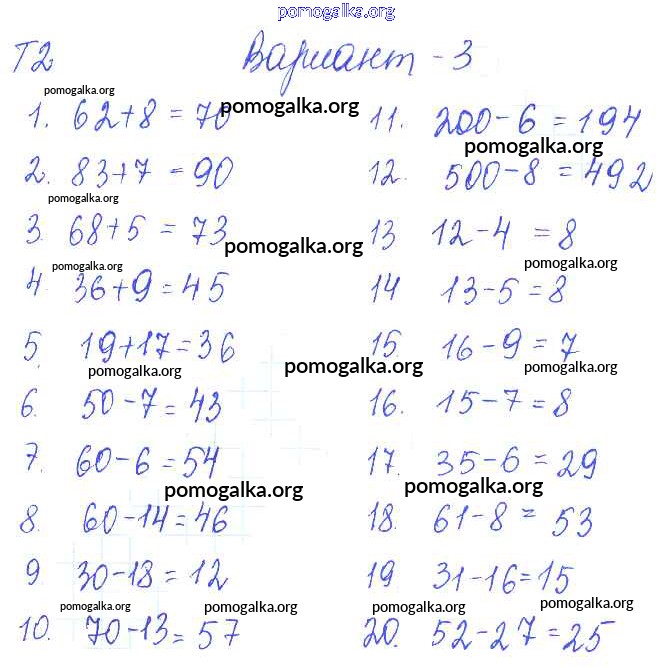 pomogalka.org
Т2 Вариант - 3
pomogalka.org
1. 62+8 = 70
pomogalka.org
11. 200-6 = 194
pomogalka.org
2. 83+7 = 90
12. 500-8 = 492
pomogalka.org
3. 68+5 = 73
13 12-4 = 8
pomogalka.org
pomogalka.org
pomogalka.org
4. 36+9 = 45
14 13-5 = 8
5. 19+17 = 36
15. 16-9 = 7
pomogalka.org
pomogalka.org
pomogalka.org
6. 50-7 = 43
16. 15-7 = 8
7. 60-6 = 54
17. 35-6 = 29
pomogalka.org
pomogalka.org
8. 60-14 = 46
18. 61-8 = 53
9 30-18 = 12
19 31-16 = 15
pomogalka.org
pomogalka.org
pomogalka.org
pomogalka.org
10. 70-13 = 57
20. 52-27 = 25